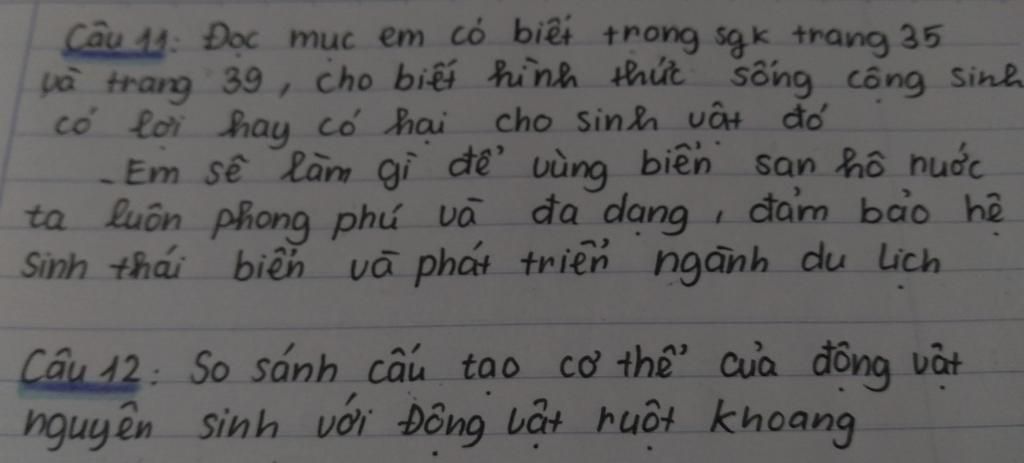 Câu 11: Đọc mục em có biết trong sgk trang 35
và trang 39, cho biết hình thức sống cộng sinh
có lợi hay có hại cho sinh vật đó
- Em sẽ làm gì để vùng biển san hô nước
ta luôn phong phú và đa dạng, đảm bảo hệ
sinh thái biển và phát triển ngành du lịch
Câu 12: So sánh cấu tạo cơ thể của động vật
nguyên sinh với Động vật ruột khoang